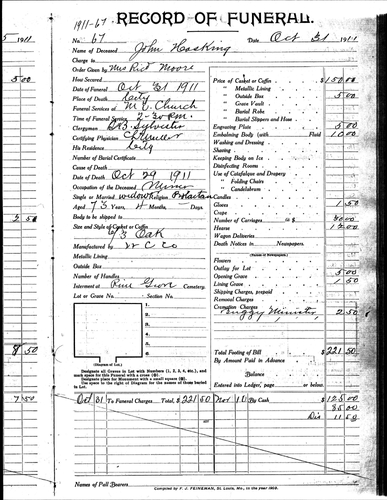 1911-67
RECORD OF FUNERAL.
5 1911
No. 67 Date Oct 31 1911
Name of Deceased John Hosking
Charge to
Order Given by Mrs Rict Moore
How Secured
Date of Funeral Oct 31 1911
Place of Death City
Funeral Services at M. E. Church
Time of Funeral Service 2-30 P.M.
Clergyman Sylvester
Certifying Physician
His Residence City
Number of Burial Certificate
Cause of Death
Date of Death Oct 29 1911
Occupation of the Deceased Miner
Single or Married widow Religion
Aged 73 Years, 4 Months, Days
Body to be shipped to
Size and Style of Casket or Coffin
6/3 Oak
Manufactured by W C Co
Metallic Lining
Outside Box
Number of Handles
Interment at Pine Grove Cemetery.
Lot or Grave No. Section No.
1
2
3
4
5
6
(Diagram of Lot.)
Designate all Graves in Lot with Numbers (1, 2, 3, 4, etc.), and mark space for this Funeral with a cross (X).
Designate place for Monument with a small square (□).
Use space to the right of Diagram for the names of those buried in Lot.
Price of Casket or Coffin $150.00
" Metallic Lining
" Outside Box 5 00
" Grave Vault
" Burial Robe
" Burial Slippers and Hose
Engraving Plate 5 00
Embalming Body (with Fluid 10 00
Washing and Dressing
Shaving
Keeping Body on Ice
Disinfecting Rooms
Use of Catafalque and Drapery
" Folding Chairs
" Candelabrum
Candles
Gloves 1 50
Crape
Number of Carriages @ $
Hearse 12 00
Wagon Deliveries
Death Notices in Newspapers.
(Names of Newspapers)
Flowers
Outlay for Lot 5 00
Opening Grave
Lining Grave 1 50
Shipping Charges, prepaid
Removal Charges
Cremation Charges
Buggy Minister 2 50
Total Footing of Bill $221.50
By Amount Paid in Advance
Balance
Entered into Ledger, page or below.
5 00
2 50
8 50
7 50
Oct 31 To Funeral Charges Total, $221 50 Nov 10 By Cash $125 00
85 00
Dis 11 50
Names of Pall Bearers
Compiled by F. J. FEINEMAN, St. Louis, Mo.,